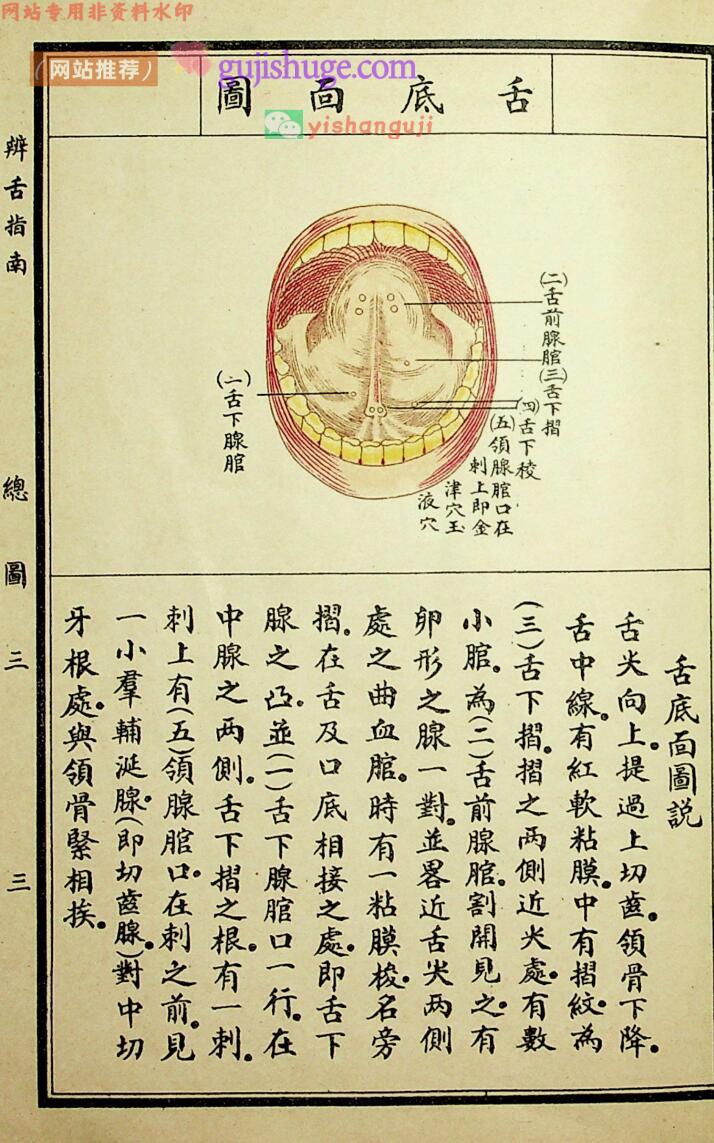 网站专用非资料水印
(网站推荐)
gujishuge.com
yishanguji
舌底面圖
辨舌指南
總圖
三
三
(二)舌前腺腔
(三)舌下摺
(四)舌下梭
(五)頷腺腔口在
刺上即金
津穴玉
液穴
(一)舌下腺腔
舌底面圖説
舌尖向上。提過上切齒。頷骨下降。
舌中線。有紅軟粘膜。中有摺紋。為
(三)舌下摺。摺之两側近尖處。有數
小腔。為(二)舌前腺腔。割開見之。有
卵形之腺一對。並畧近舌尖两側
處之曲血腔。時有一粘膜梭。名旁
摺。在舌及口底相接之處。即舌下
腺之凸。並(一)舌下腺腔口一行。在
中腺之两側。舌下摺之根。有一刺。
刺上有(五)頷腺腔口。在刺之前。見
一小羣輔涎腺。(即切齒腺。)對中切
牙根處。與頷骨緊相挨。